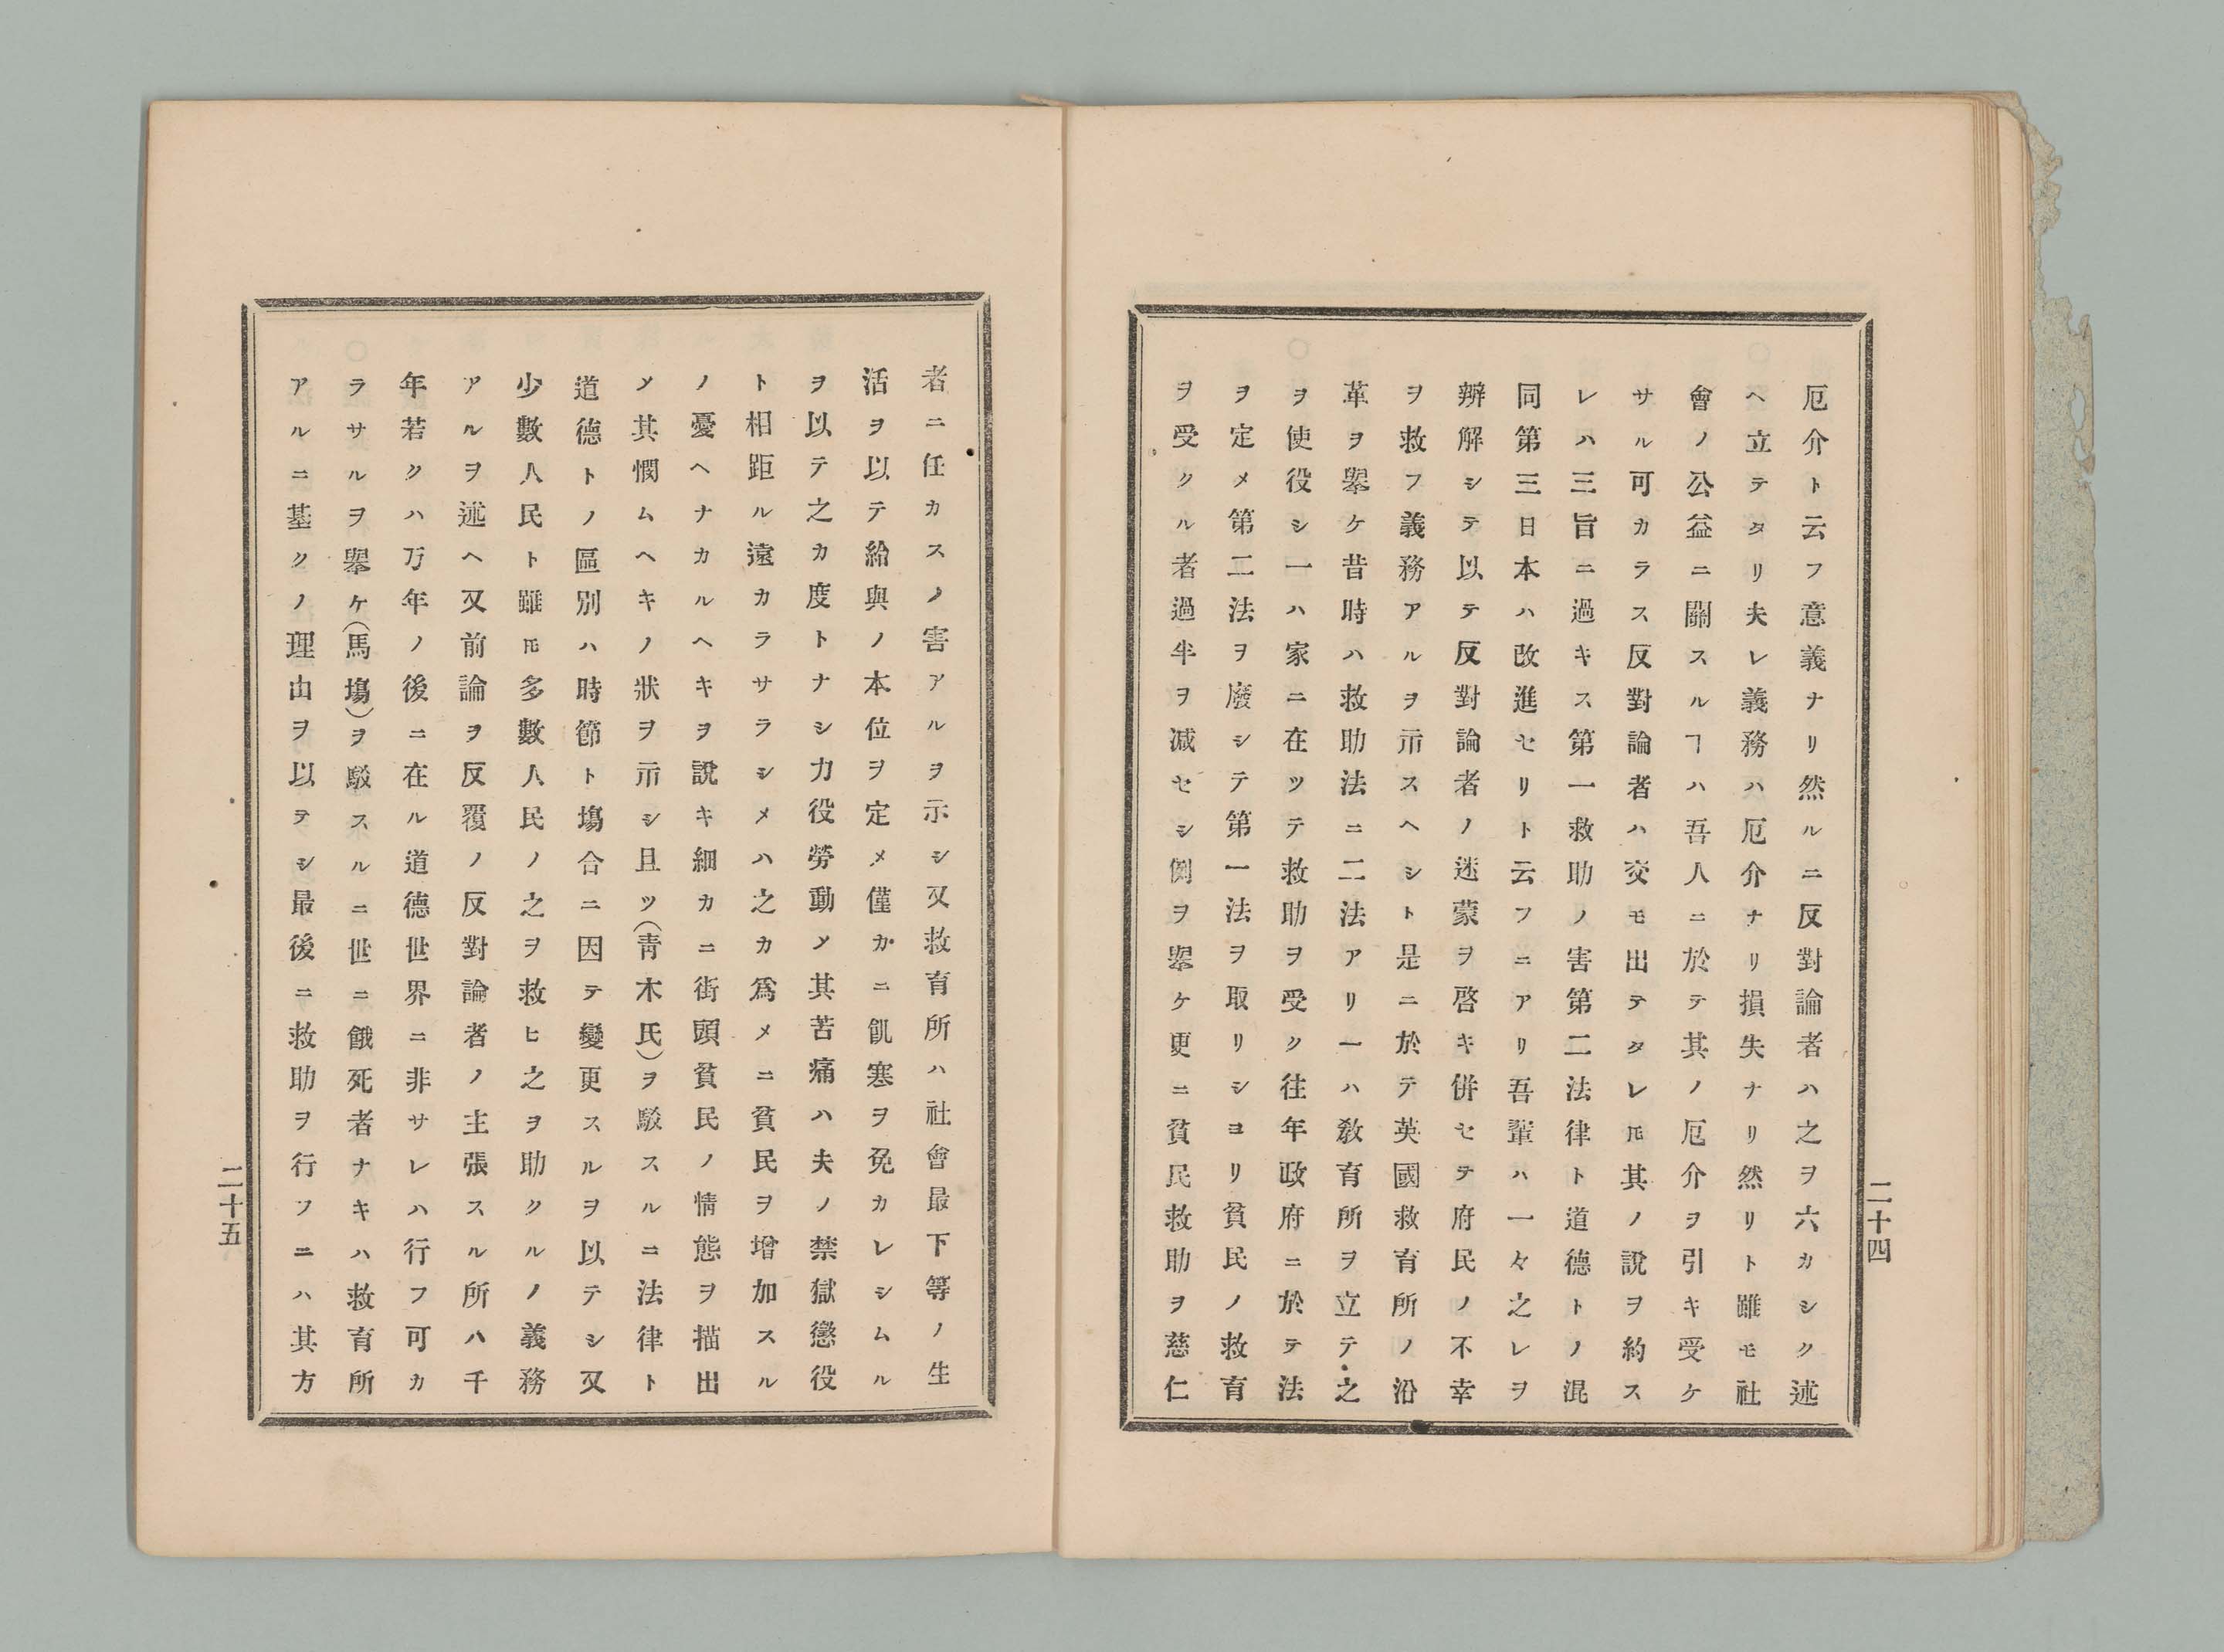 厄介ト云フ意義ナリ然ルニ反對論者ハ之ヲ六カシク述
ヘ立テタリ夫レ義務ハ厄介ナリ損失ナリ然リト雖モ社
會ノ公益ニ關スルヿハ吾人ニ於テ其ノ厄介ヲ引キ受ケ
サル可カラス反對論者ハ交モ出テタレ𪜈其ノ說ヲ約ス
レハ三旨ニ過キス第一救助ノ害第二法律ト道德トノ混
同第三日本ハ改進セリト云フニアリ吾輩ハ一々之レヲ
辨解シテ以テ反對論者ノ迷蒙ヲ啓キ併セテ府民ノ不幸
ヲ救フ義務アルヲ示スヘシト是ニ於テ英國救育所ノ沿
革ヲ擧ケ昔時ハ救助法ニ二法アリ一ハ敎育所ヲ立テ之
ヲ使役シ一ハ家ニ在ツテ救助ヲ受ク往年政府ニ於テ法
ヲ定メ第二法ヲ廢シテ第一法ヲ取リシヨリ貧民ノ救育
ヲ受クル者過半ヲ減セシ例ヲ擧ケ更ニ貧民救助ヲ慈仁
二十四
者ニ任カスノ害アルヲ示シ又救育所ハ社會最下等ノ生
活ヲ以テ給與ノ本位ヲ定メ僅カニ飢寒ヲ免カレシムル
ヲ以テ之カ度トナシ力役勞動メ其苦痛ハ夫ノ禁獄懲役
ト相距ル遠カラサラシメハ之カ爲メニ貧民ヲ增加スル
ノ憂ヘナカルヘキヲ說キ細カニ街頭貧民ノ情態ヲ描出
メ其憫ムヘキノ狀ヲ示シ且ツ(靑木氏)ヲ駁スルニ法律ト
道德トノ區別ハ時節ト塲合ニ因テ變更スルヲ以テシ又
少數人民ト雖𪜈多數人民ノ之ヲ救ヒ之ヲ助クルノ義務
アルヲ述ヘ又前論ヲ反覆ノ反對論者ノ主張スル所ハ千
年若クハ万年ノ後ニ在ル道德世界ニ非サレハ行フ可カ
ラサルヲ擧ケ(馬塲)ヲ駁スルニ世ニ餓死者ナキハ救育所
アルニ基クノ理由ヲ以テシ最後ニ救助ヲ行フニハ其方
二十五